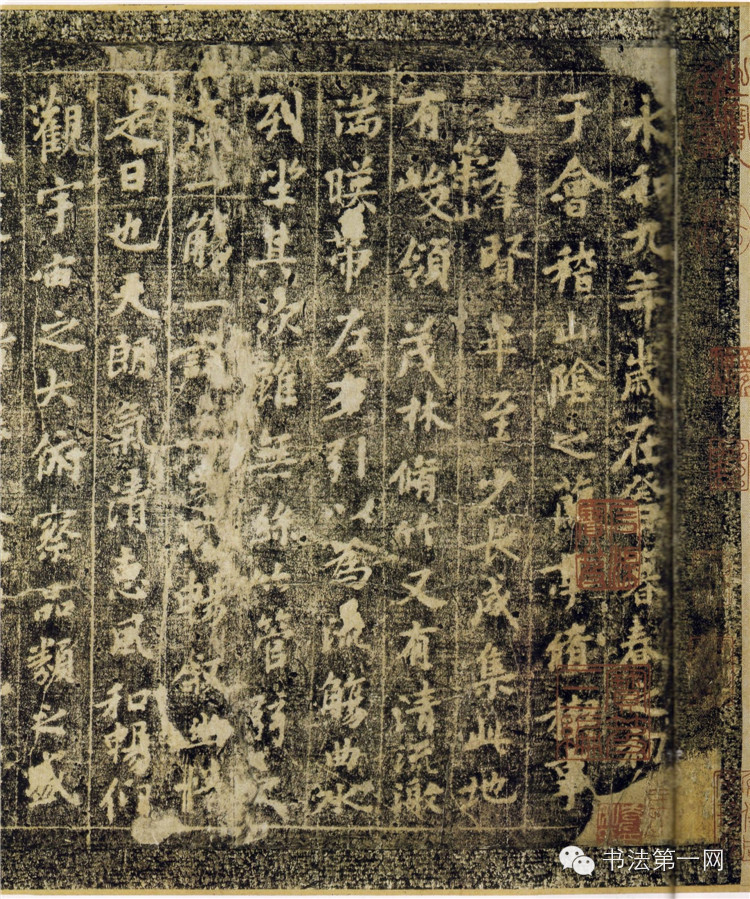 永和九年歲在癸暮春之初
于會稽山陰之蘭亭脩禊事
也羣賢畢至少長咸集此地
有崇山峻領茂林脩竹又有清流激
湍暎帶左右引以為流觴曲水
列坐其次雖無絲竹管弦之
盛一觴一詠暢叙幽情
是日也天朗氣清惠風和暢仰
觀宇宙之大俯察品類之盛
书法第一网